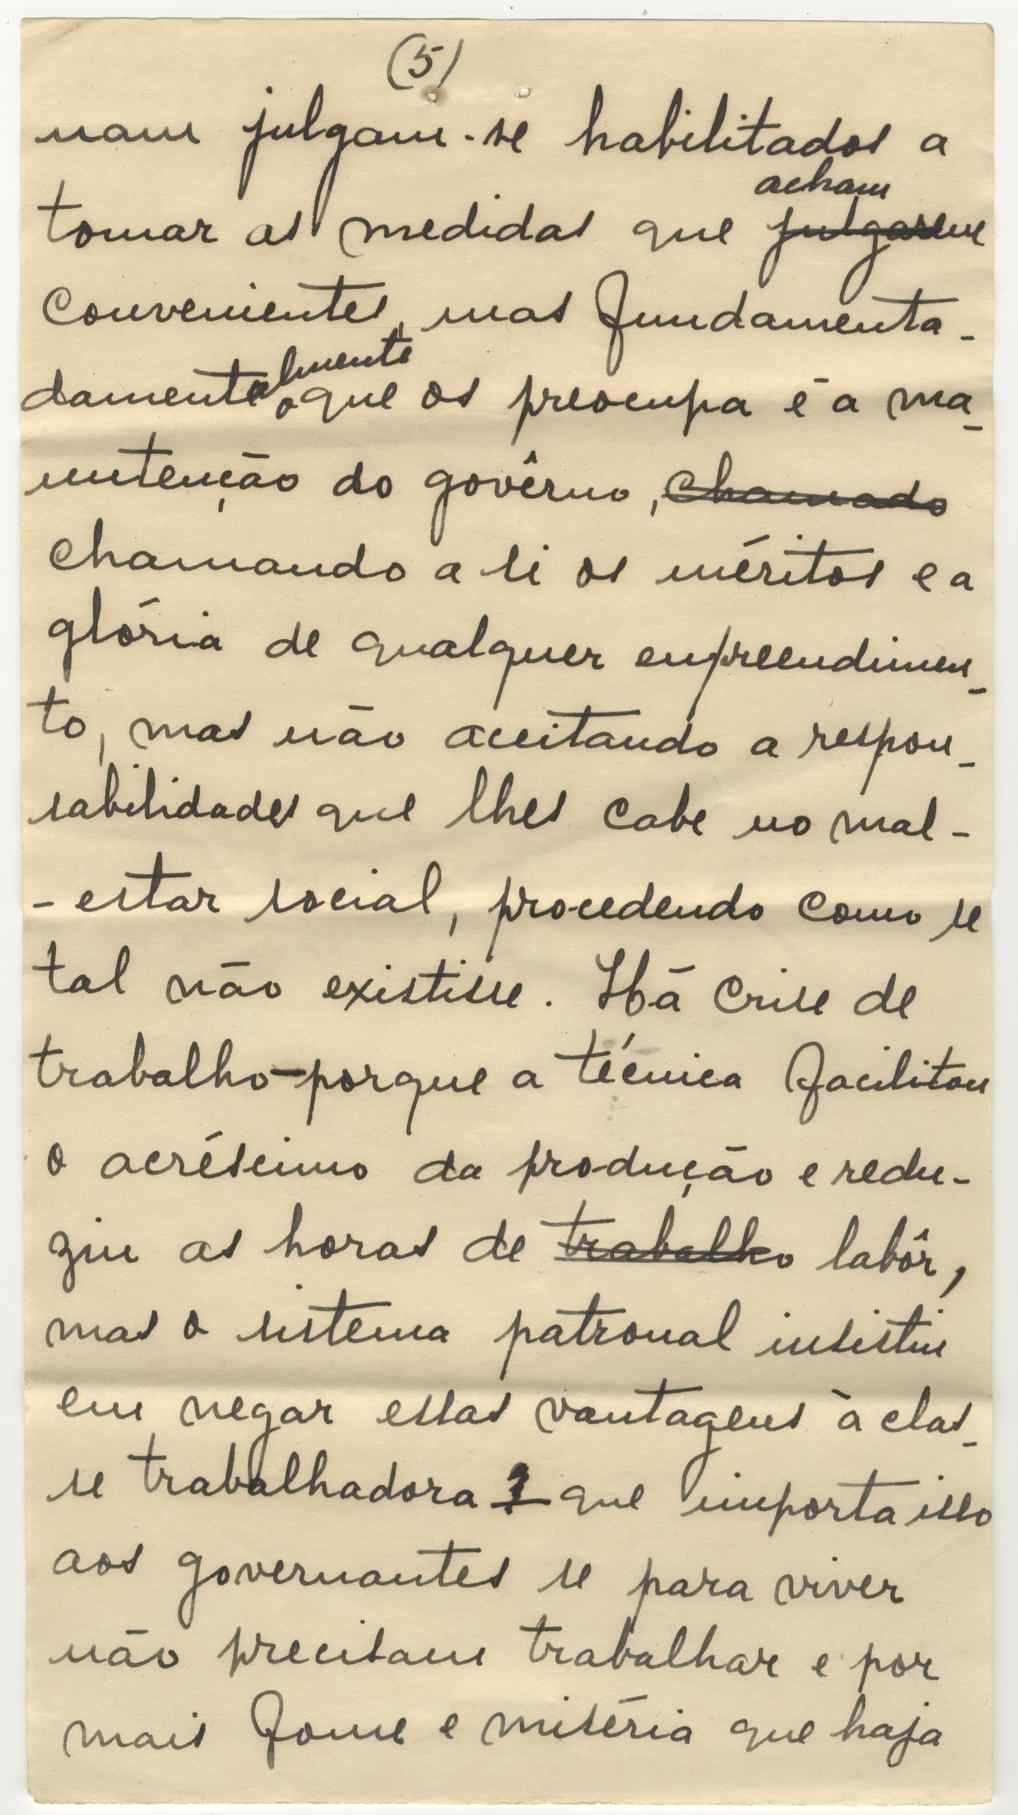 (5)
nam julgam-se habilitados a
acham
tomar as medidas que julgarem
convenientes, mas fundamenta-
almente
damente o que os preocupa é a ma-
nutenção do govêrno, chamado
chamando a si os méritos e a
glória de qualquer empreendimen-
to, mas não aceitando a respon-
sabilidades que lhes cabe no mal-
-estar social, procedendo como se
tal não existisse. Há crise de
trabalho—porque a técnica facilitou
o acréscimo da produção e redu-
ziu as horas de trabalho labôr,
mas o sistema patronal insistiu
em negar essas vantagens à clas-
se trabalhadora? — que importa isso
aos governantes se para viver
não precisam trabalhar e por
mais fome e miséria que haja